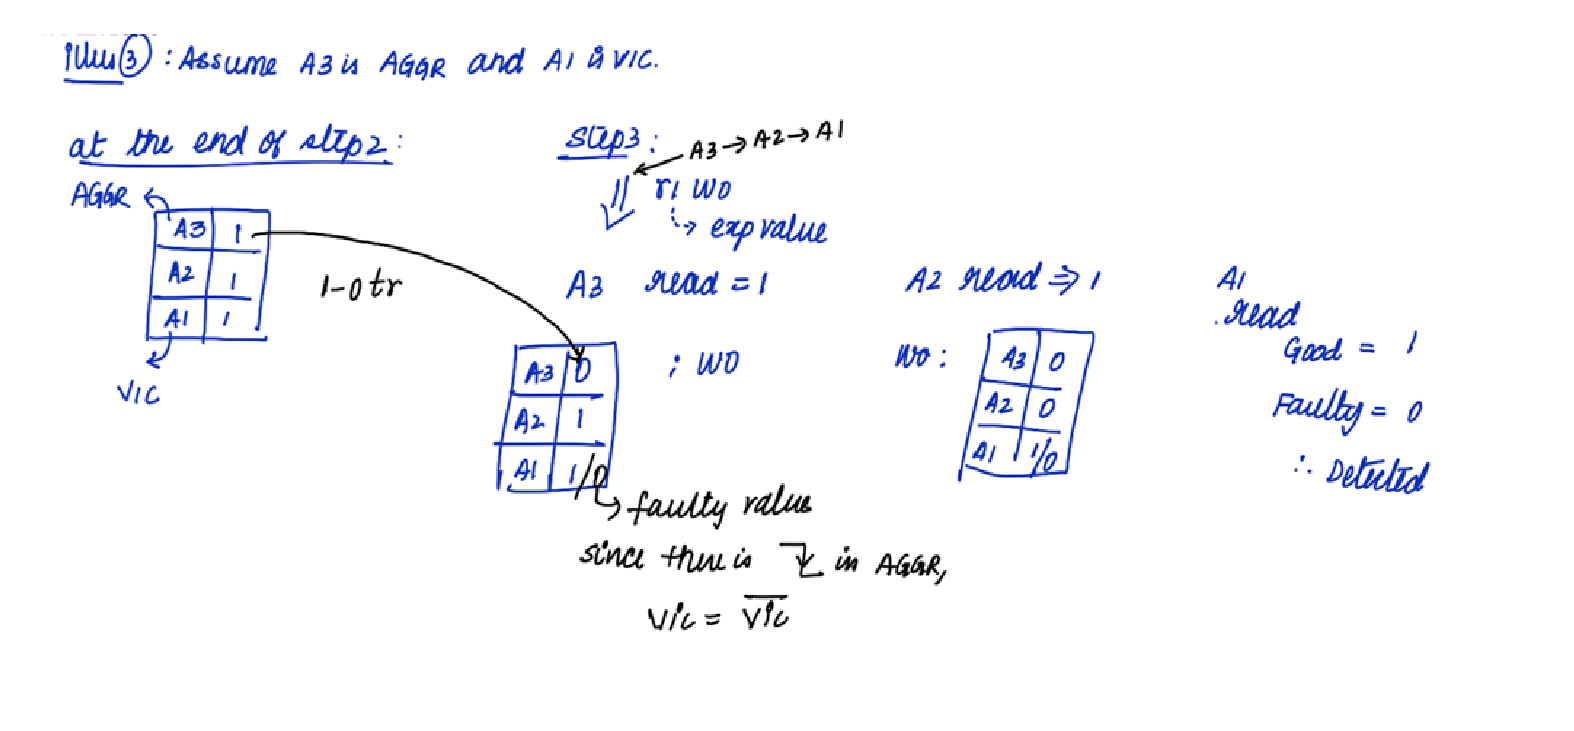 illus ③ : Assume A3 is AGGR and A1 is VIC.
at the end of step2:
step3:
A3 → A2 → A1
⇓ r1 w0
↳ exp value
AGGR
A3 1
A2 1
A1 1
VIC
1-0 tr
A3 read = 1
; W0
A3 0
A2 1
A1 1/0
↳ faulty value
since there is ↓ in AGGR,
Vic = \overline{Vic}
A2 read ⇒ 1
W0 :
A3 0
A2 0
A1 1/0
A1
read
Good = 1
Faulty = 0
∴ Detected